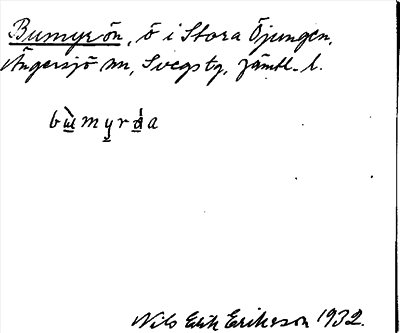 Bumyrön, ö i Stora Öjungen,
Ängersjö sn, Svegs tg, Jämtl. l.
bùmyrása
Nils Erik Erikson 1932.